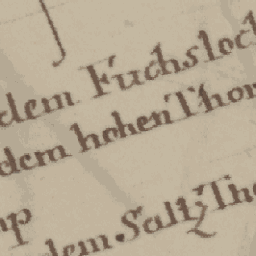 dem Fuchsloch
dem hohen Thor
dem Saltz Tho